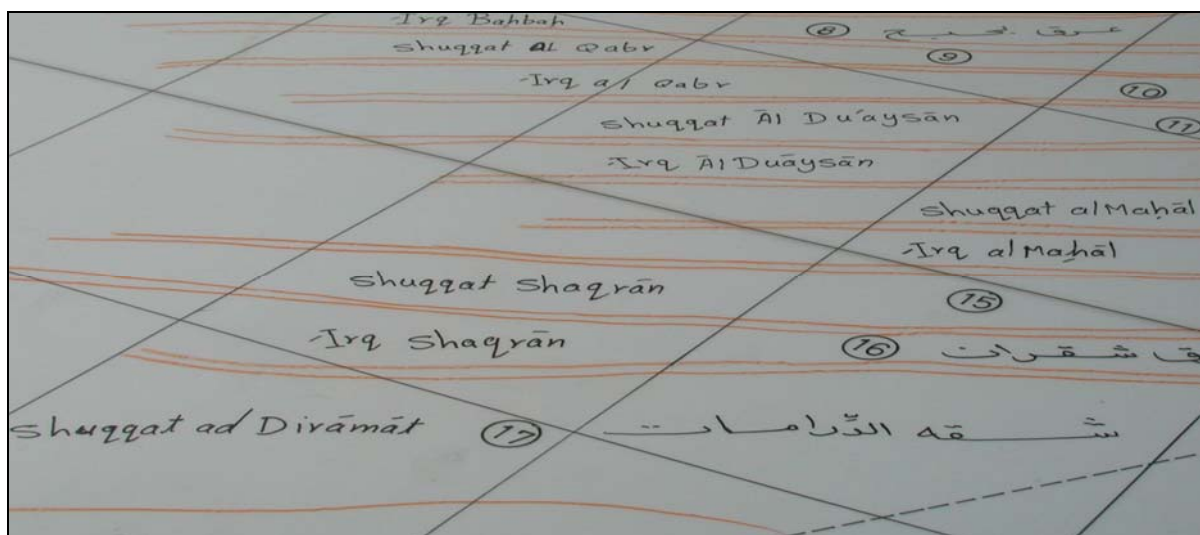 -Irq Bahbah ⑧ عرق بحبح
Shuqqat AL Qabr ⑨
-Irq al Qabr ⑩
Shuqqat Āl Du'aysān ⑪
-Irq Āl Duāysān
Shuqqat al Maḥāl
-Irq al Maḥāl
Shuqqat Shaqrān ⑮
-Irq Shaqrān ⑯ ق شقران
Shuqqat ad Dirāmāt ⑰ شقه الدّرامات